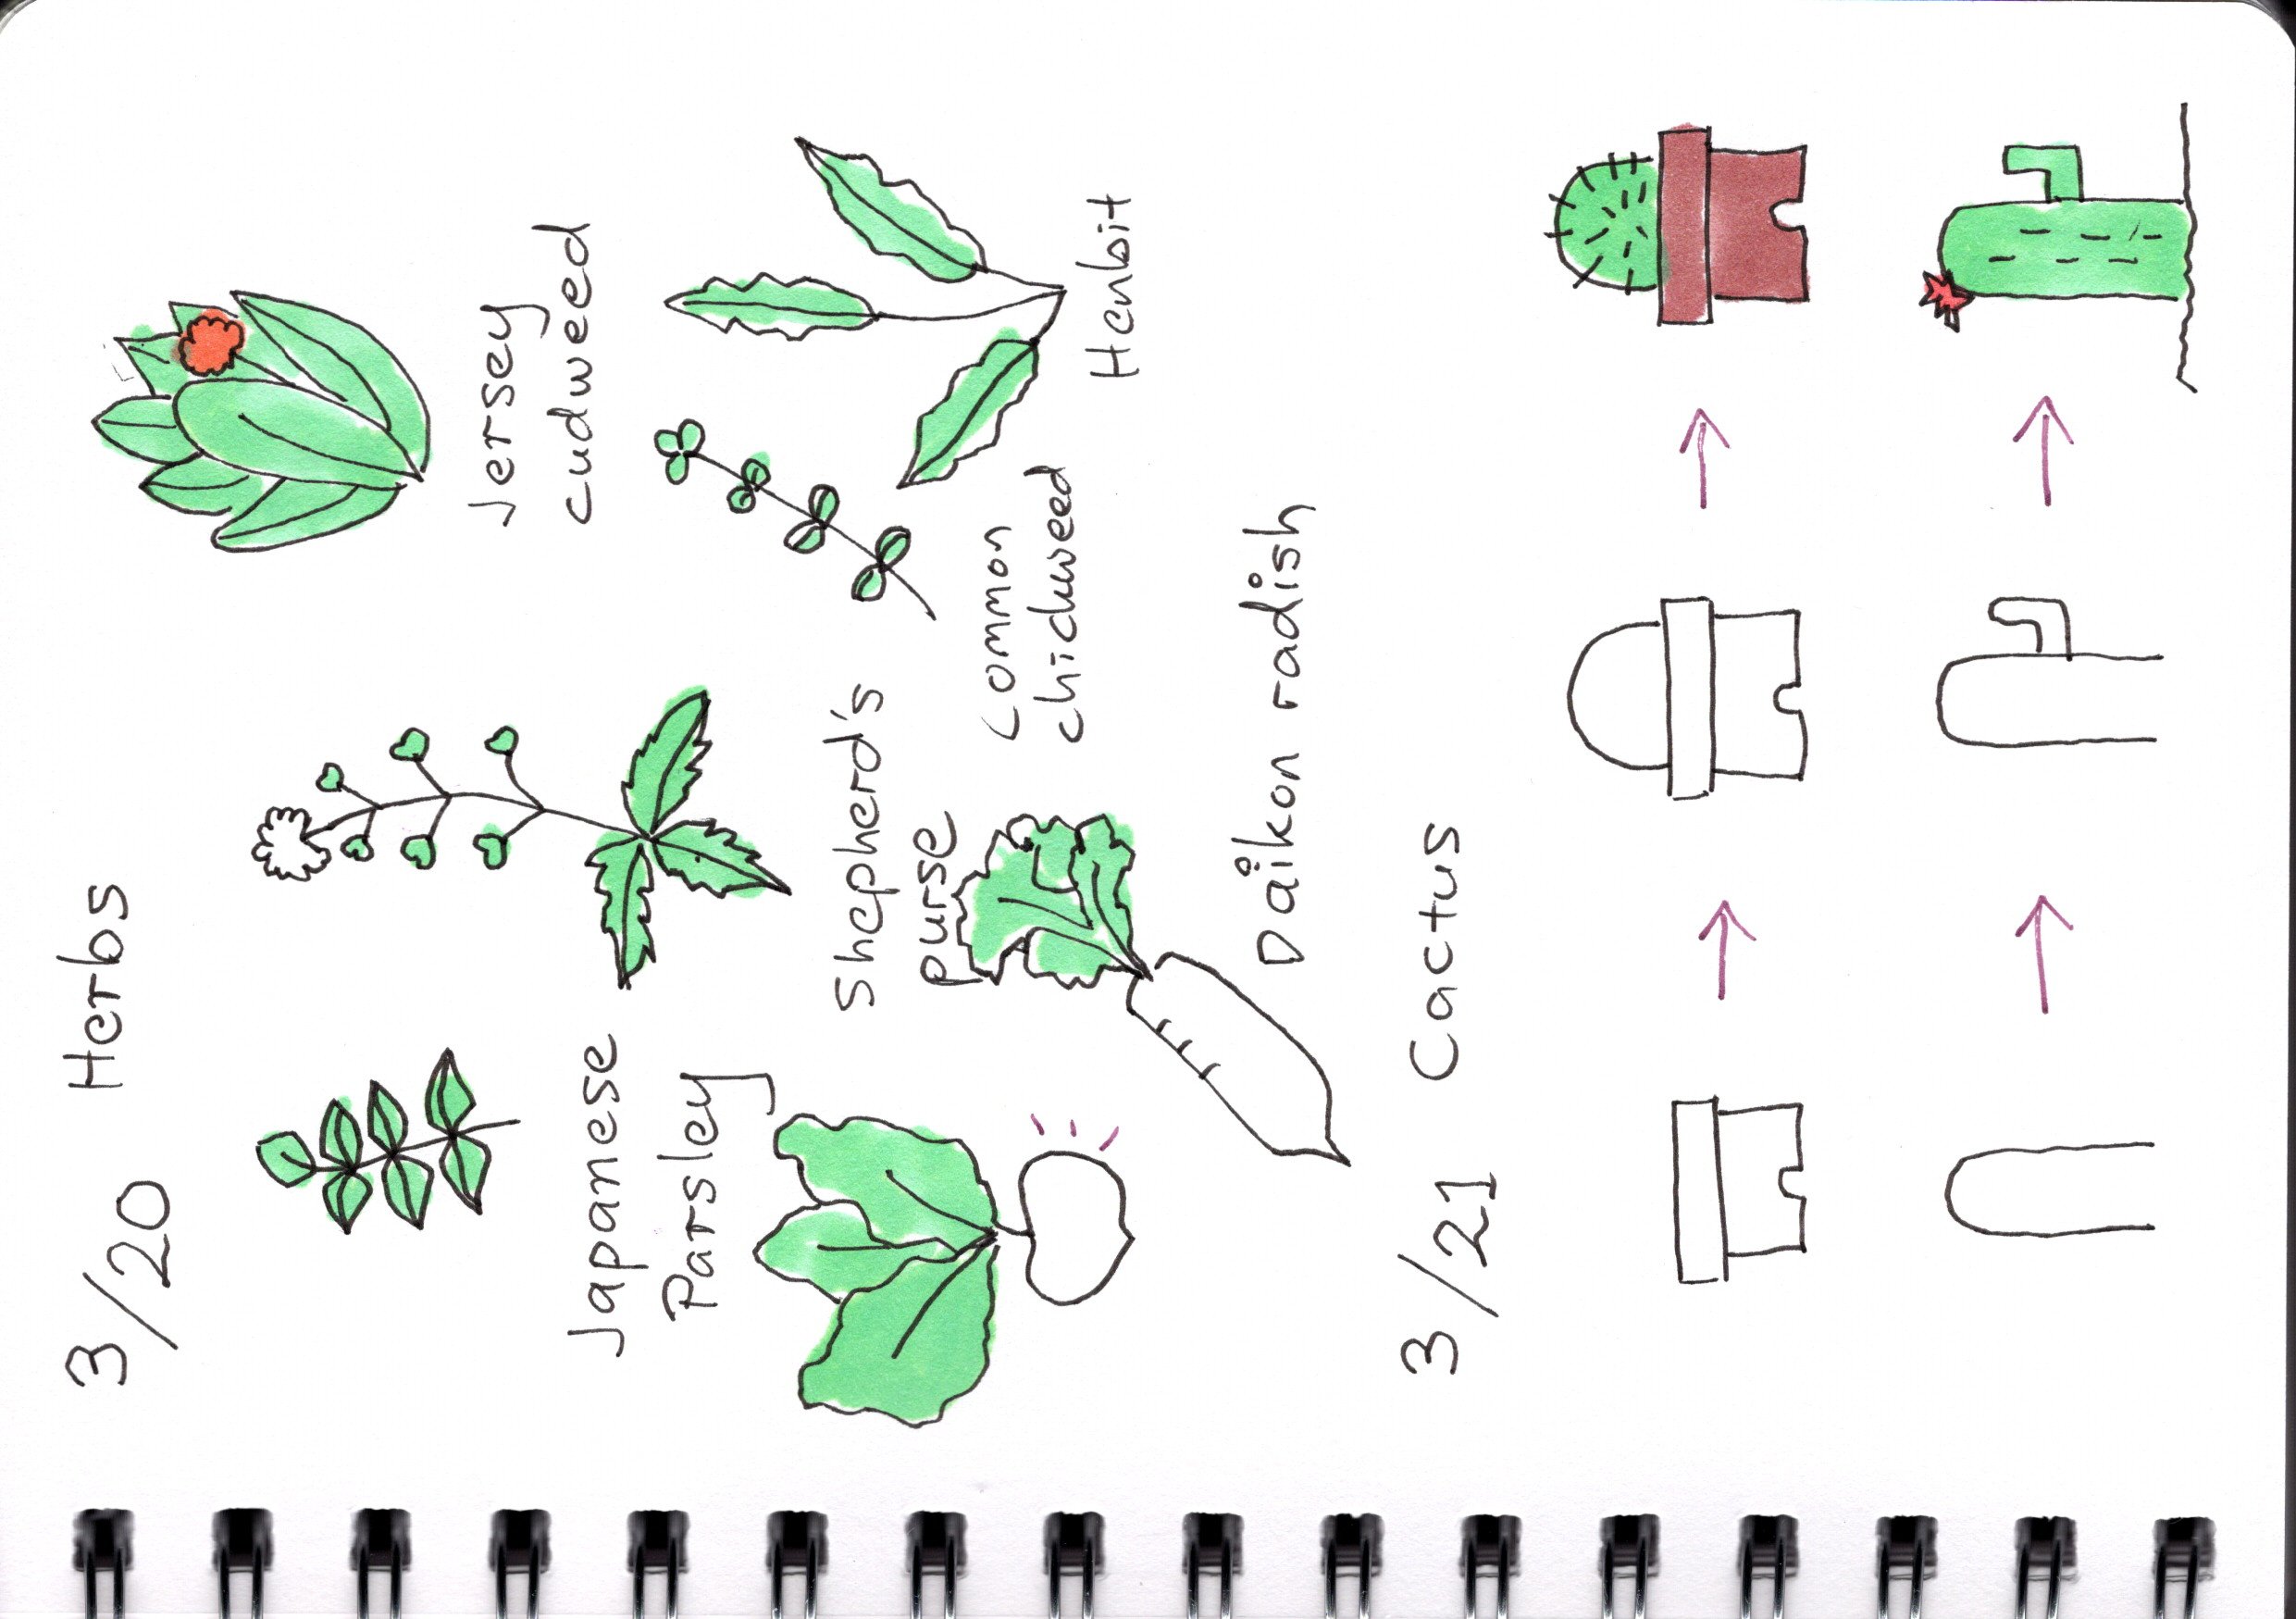 3/20 Herbs
Japanese
Parsley
Shepherd's
purse
Jersey
cudweed
Common
chickweed
Henbit
Daikon radish
3/21 Cactus